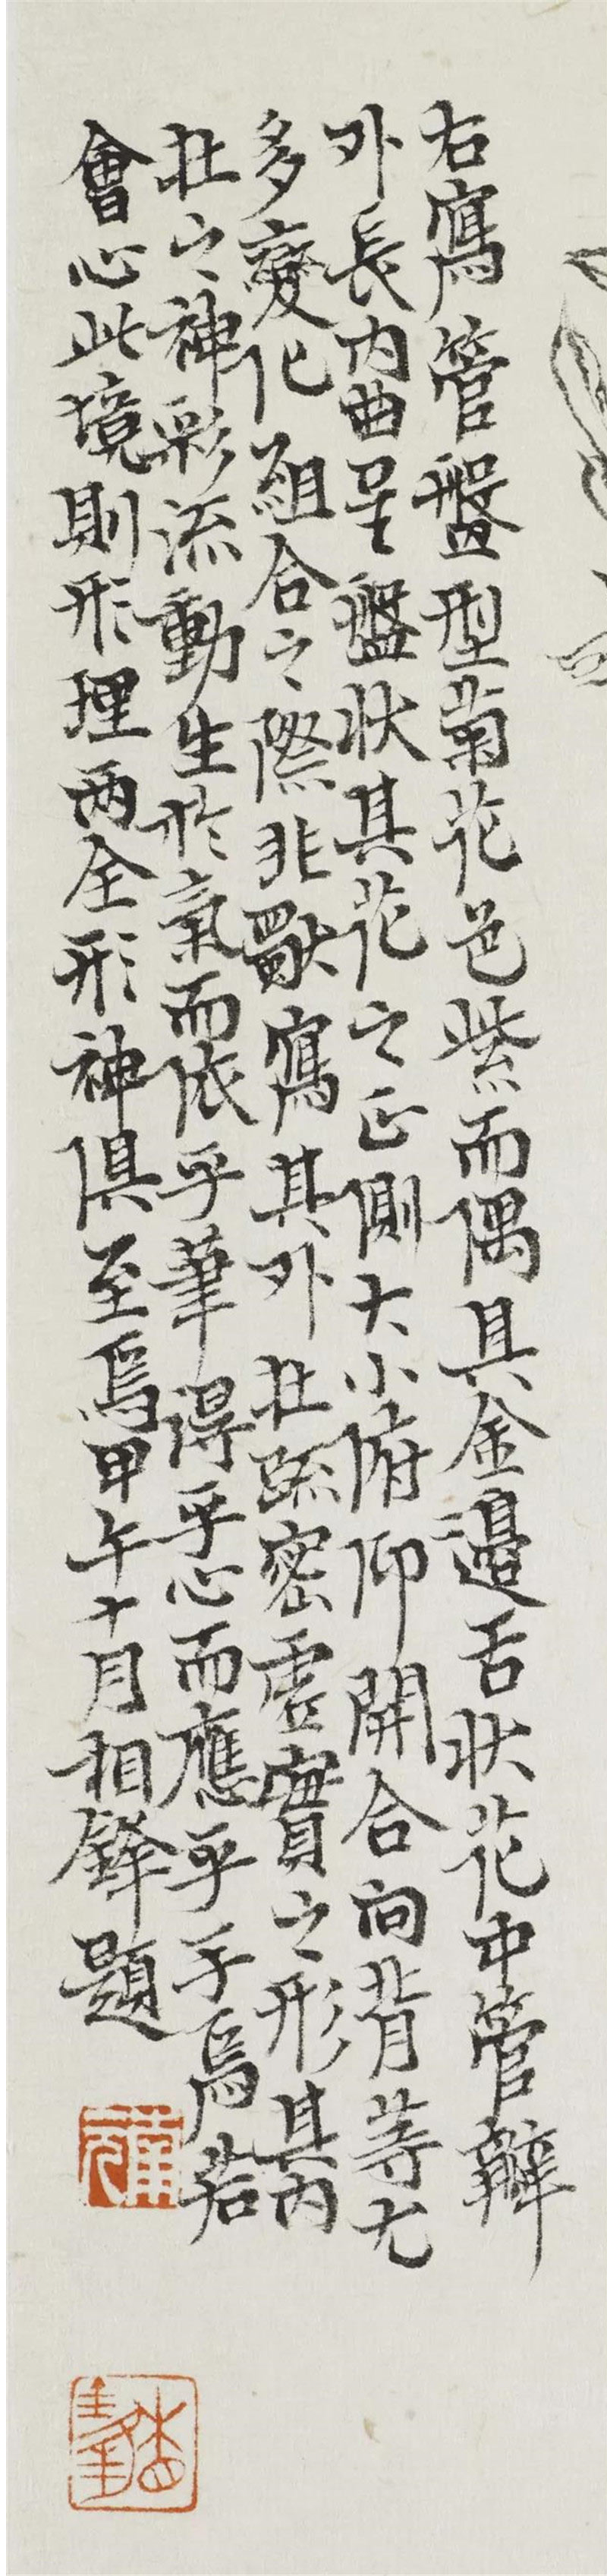 右寫管盤型菊花色紫而偶具金邊舌狀花中管辦
外長內曲呈盤狀其花之正側大小俯仰開合向背等尤
多變化組合之際非獸寫其外壯疏密虛實之形其內
壯之神彩流動生於氣而依乎筆得乎心而應乎手焉若
會心此境則形理兩全形神俱至焉甲午十月相鋒題